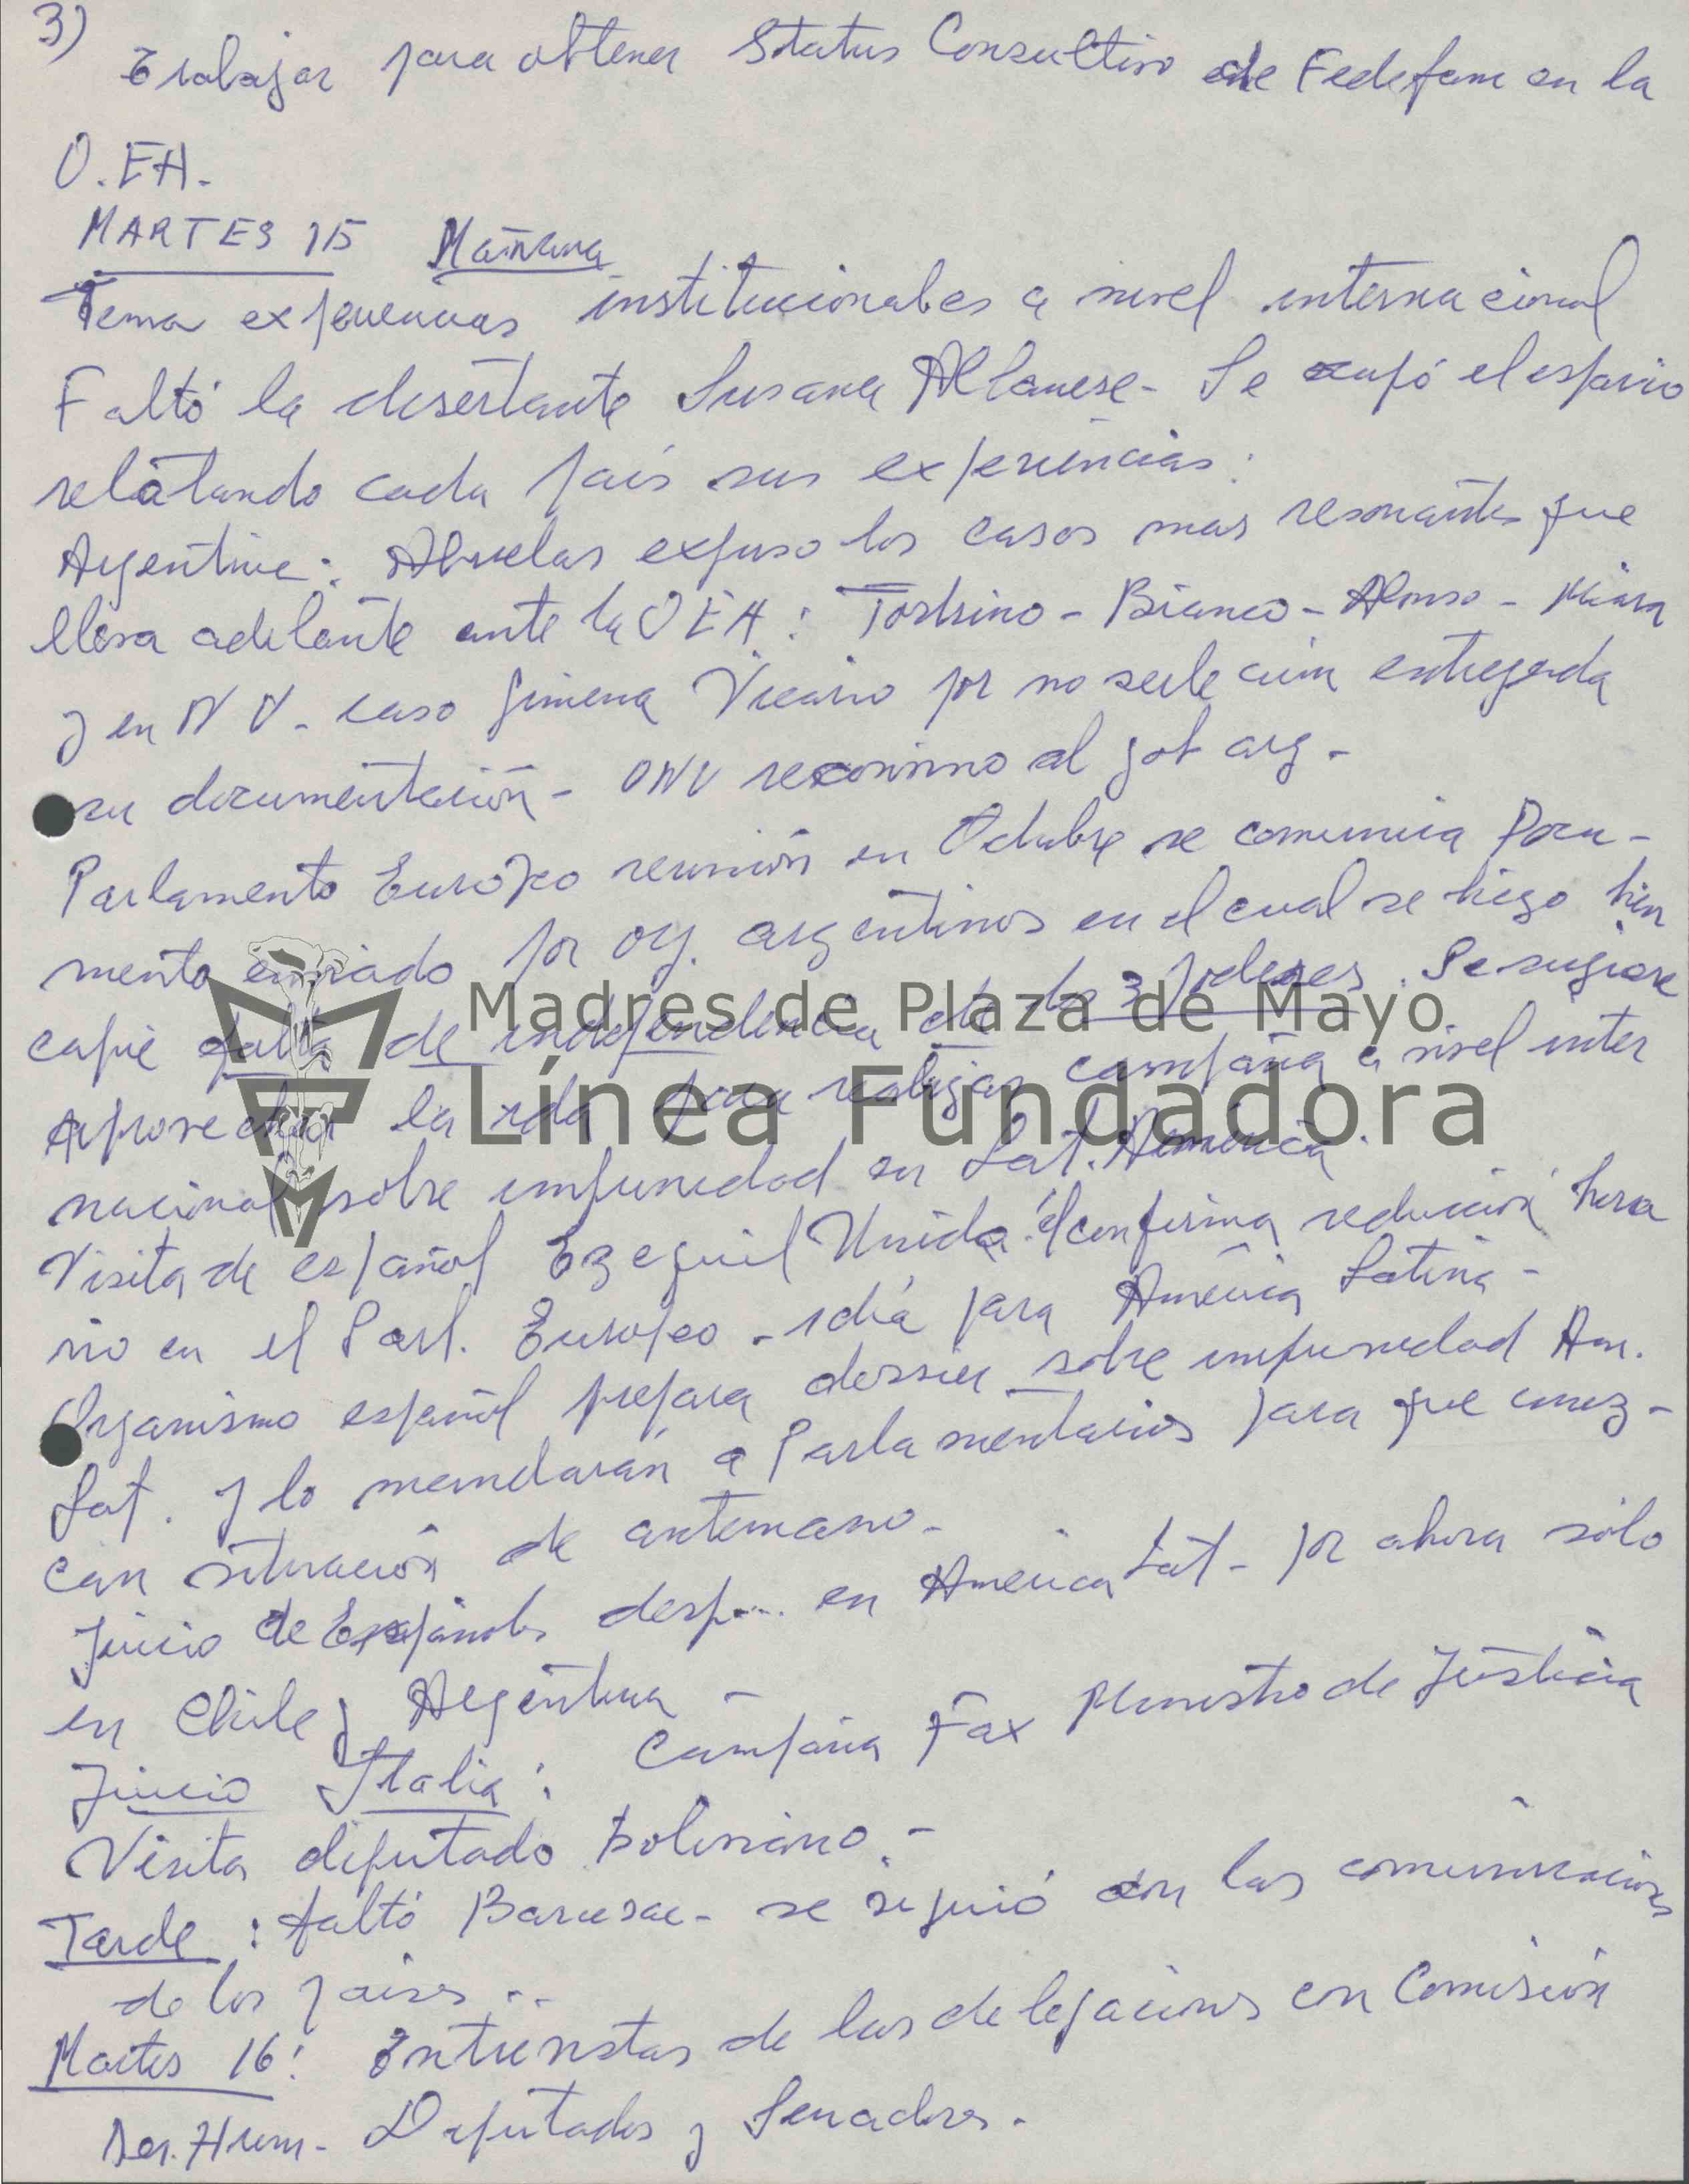 3)
Trabajar para obtener Status Consultivo de Fedefam en la
O.EA.
MARTES 15 Mañana
Tema experiencias institucionales a nivel internacional
Faltó la disertante Susana Albanese - Se ocupó el espacio
relatando cada país sus experiencias:
Argentina: Abuelas expuso los casos mas resonantes que
lleva adelante ante la OEA: Tortrino - Bianco - Alonso - Miara
y en N U - caso Jimena Vicario por no serle aún entregada
su documentación - ONU reconvino al gob arg -
Parlamento Europeo reunión en Octubre se comunica Docu-
mento enviado por org. argentinos en el cual se hizo hin
capié falta de independencia de los 3 poderes. Se sugiere
Madres de Plaza de Mayo
aprovechar la ida para realizar campaña a nivel inter
Línea Fundadora
nacional sobre impunidad en Lat. América.
Visita de español Ezequiel Unida: él confirma reducción hora
rio en el Parl. Europeo - 1 día para América Latina -
Organismo español prepara dossier sobre impunidad Am.
Lat. y lo mandarán a Parlamentarios para que conoz-
can situación de antemano -
Juicio de Españoles desp... en América Lat - por ahora sólo
en Chile y Argentina -
Juicio Italia: Campaña Fax Ministro de Justicia
Visita diputado Boliviano. -
Tarde: faltó - se siguió con las comunicaciones
de los países ..
Martes 16: Entrevistas de las delegaciones con Comisión
Der. Hum - Diputados y Senadores.